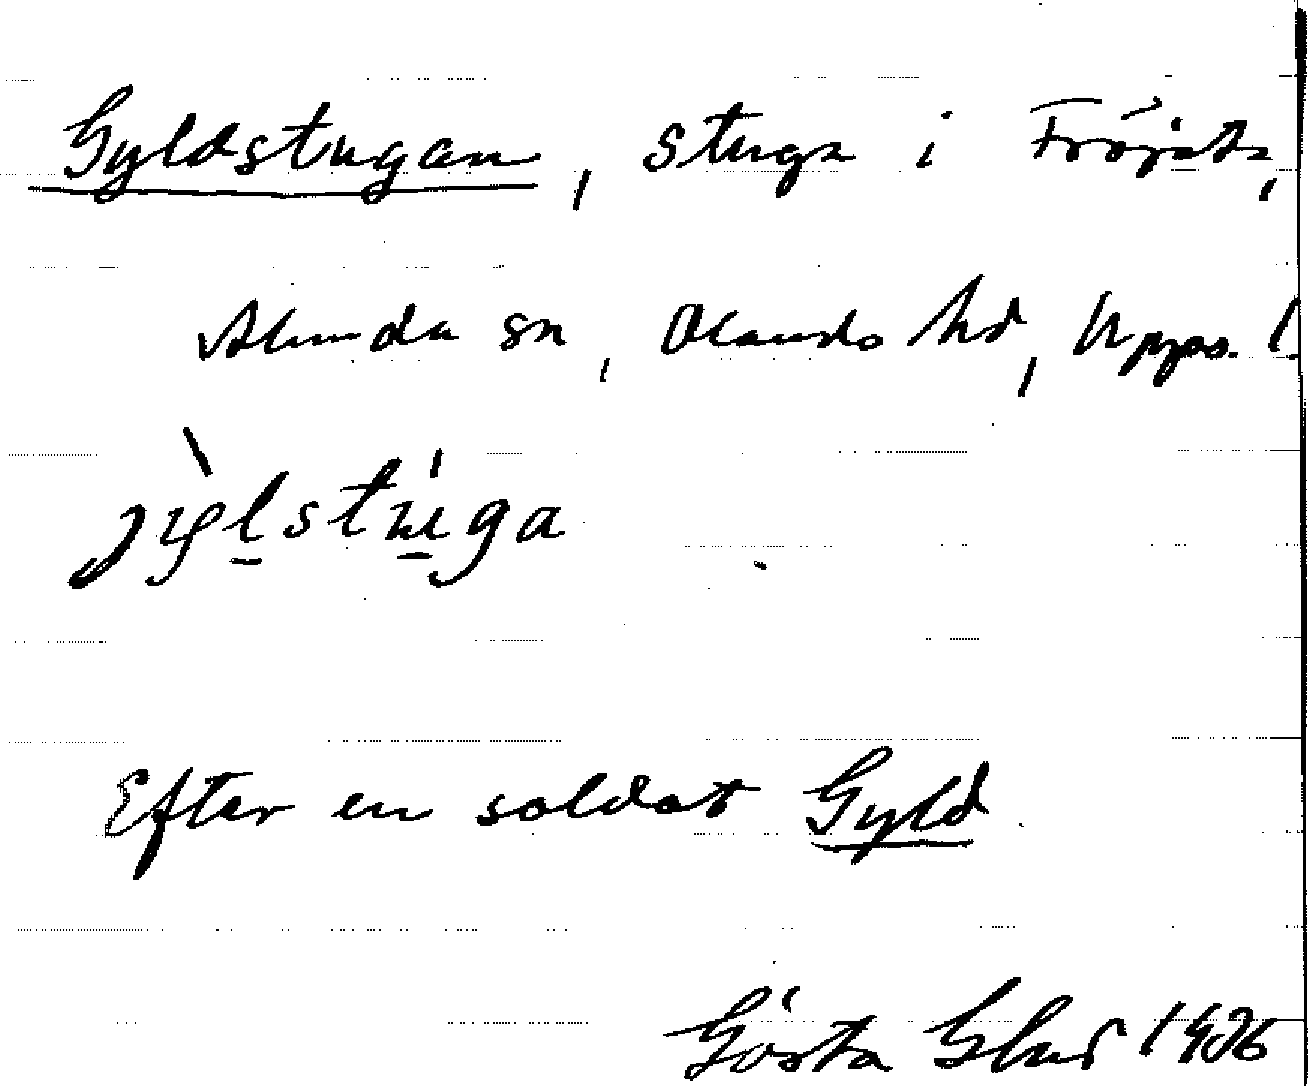 Gyldstugan, stuga i Fröjsta,
Alunda sn, Olands hd, Upps. l.
jy̖l̲stu̲ga
Efter en soldat Gyld
Gösta